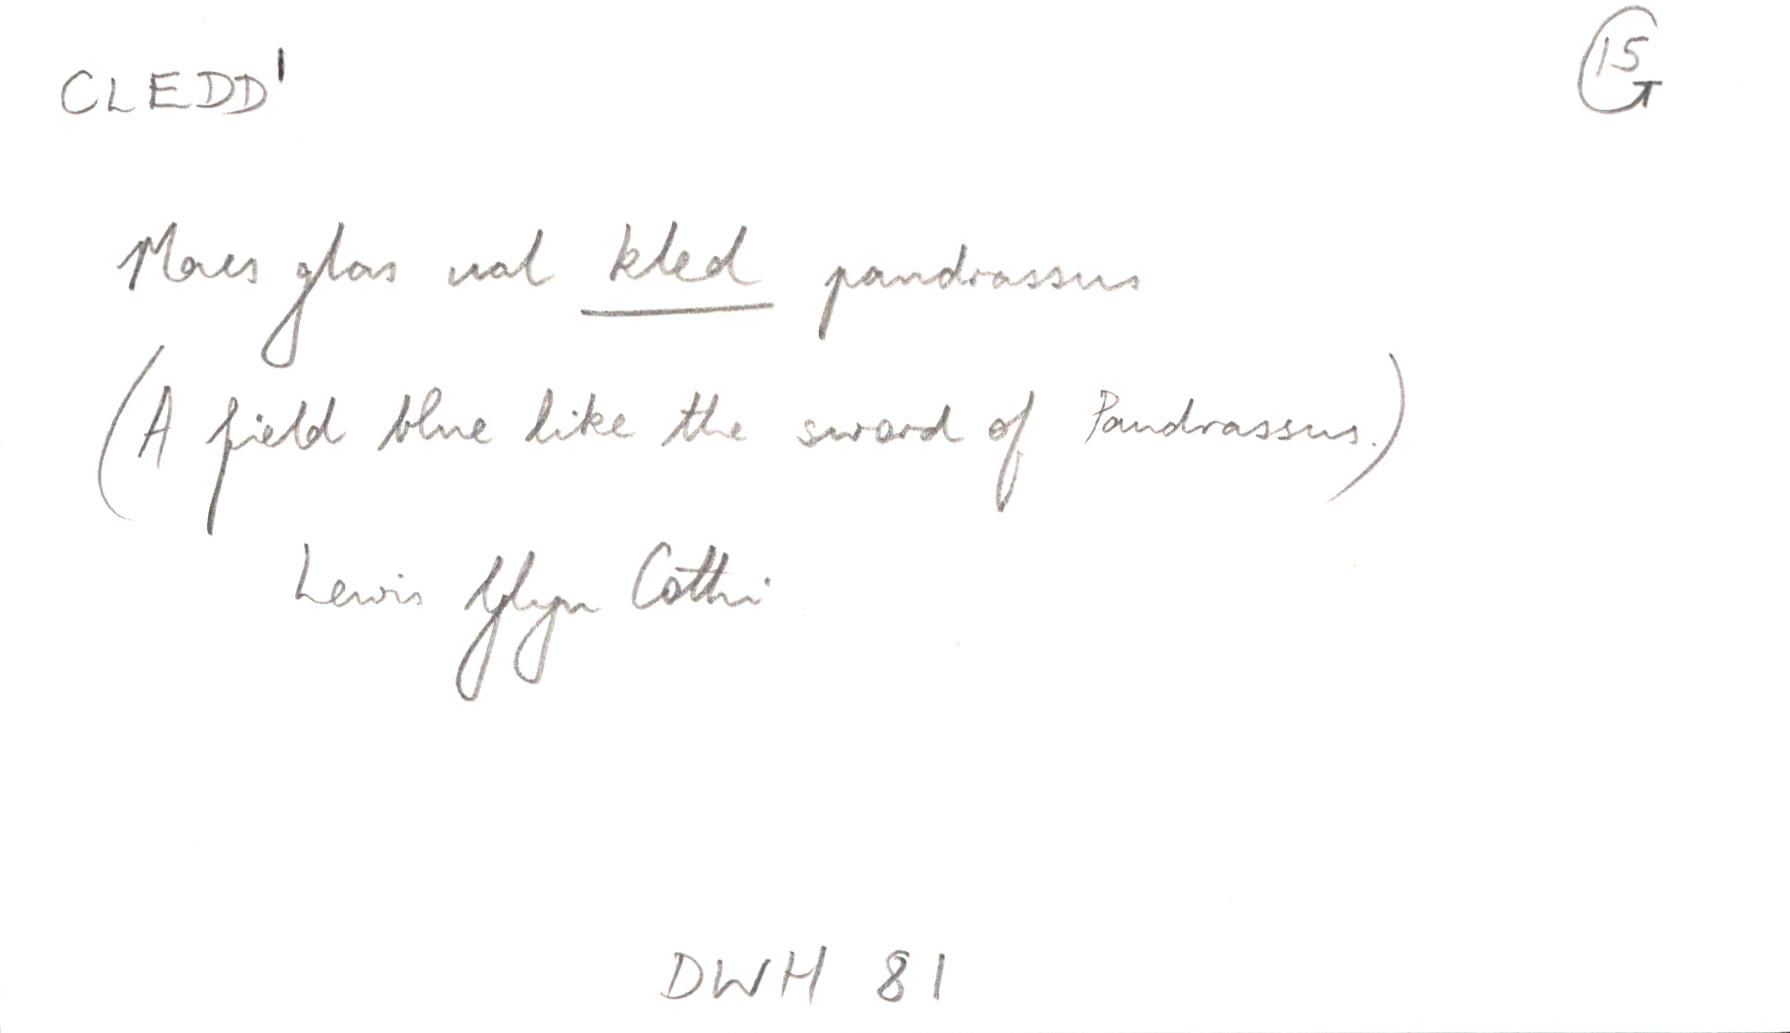 CLEDD'
15 G
Maes glas ual kled pandrassus
(A field blue like the sword of Pandrassus.)
Lewis Glyn Cothi
DWH 81